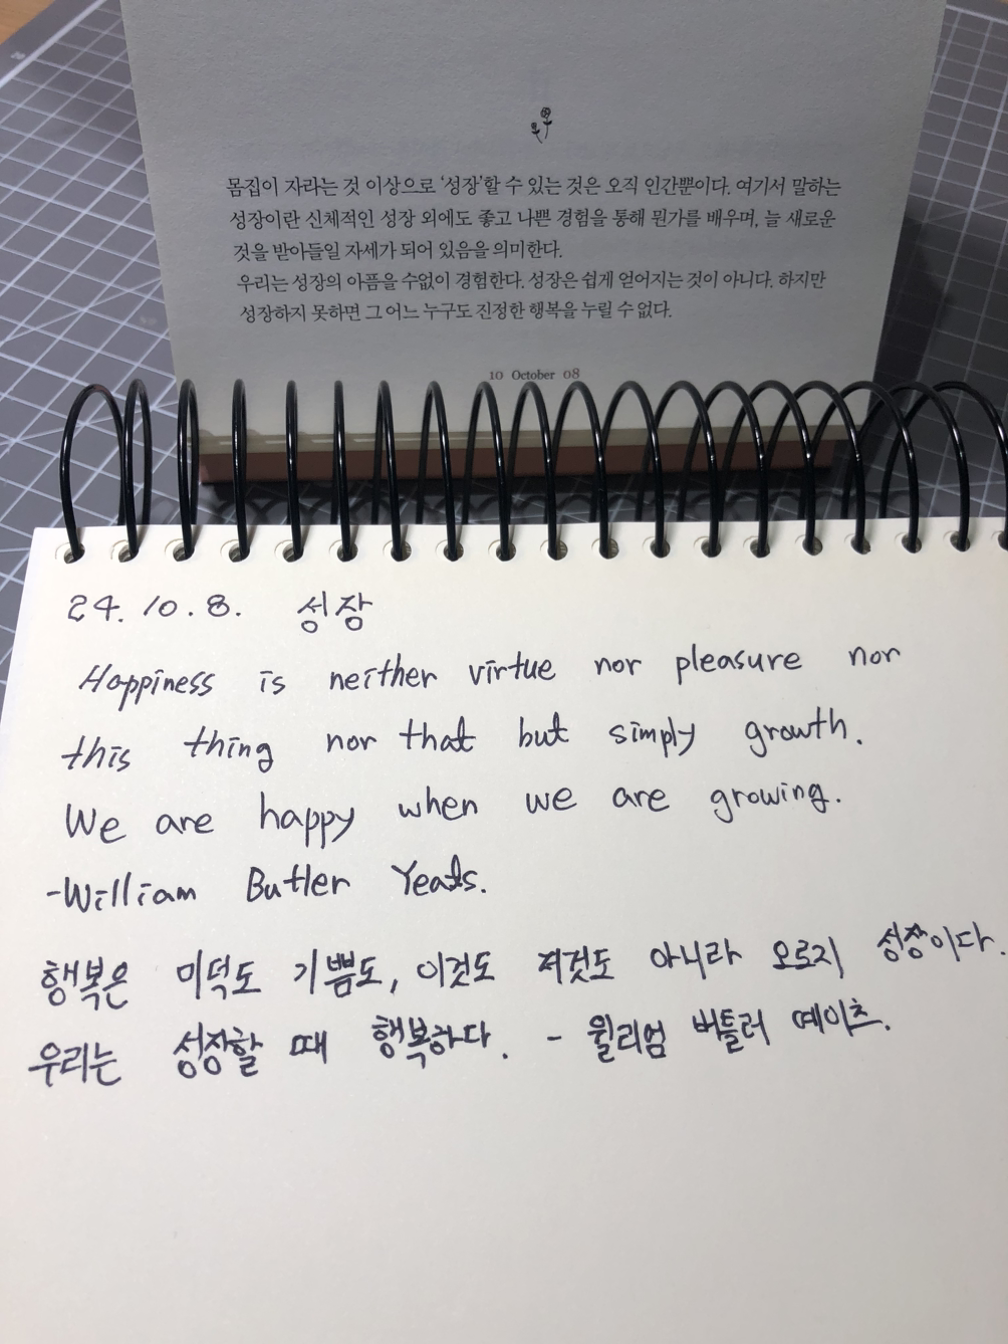 몸집이 자라는 것 이상으로 ‘성장’할 수 있는 것은 오직 인간뿐이다. 여기서 말하는
성장이란 신체적인 성장 외에도 좋고 나쁜 경험을 통해 뭔가를 배우며, 늘 새로운
것을 받아들일 자세가 되어 있음을 의미한다.
우리는 성장의 아픔을 수없이 경험한다. 성장은 쉽게 얻어지는 것이 아니다. 하지만
성장하지 못하면 그 어느 누구도 진정한 행복을 누릴 수 없다.
10 October 08
24. 10. 8. 성장
Happiness is neither virtue nor pleasure nor
this thing nor that but simply growth.
We are happy when we are growing.
-William Butler Yeats.
행복은 미덕도 기쁨도, 이것도 저것도 아니라 오로지 성장이다.
우리는 성장할 때 행복하다. - 윌리엄 버틀러 예이츠.